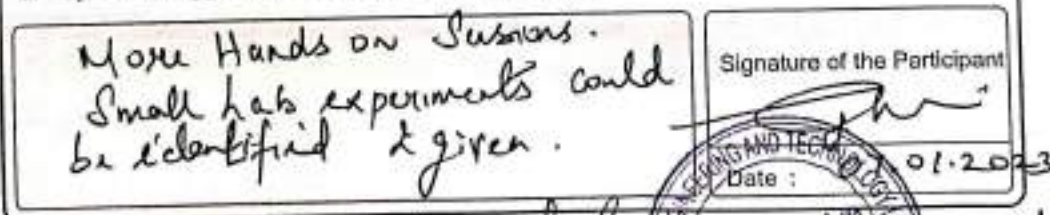 More Hands on Sessions.
Small Lab experiments could
be identified & given.
Signature of the Participant
Date : 01.2023
ENGINEERING AND TECHNOLOGY